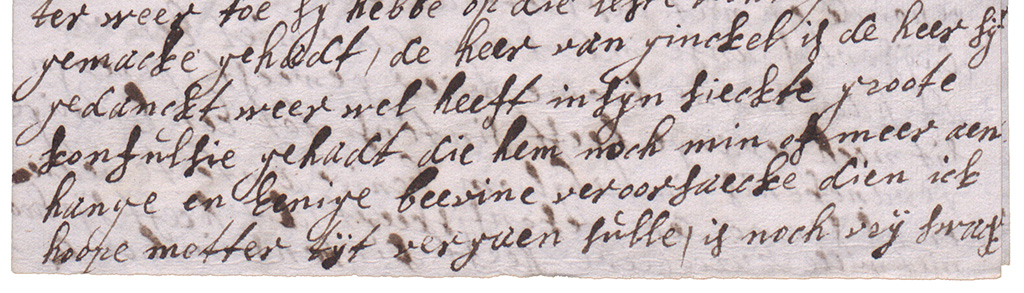 ter weer toe sy hebbe op die
gemacke gehadt, de heer van ginckel is de heer sy
gedanckt weer wel heeft in syn sieckte groote
konfulsie gehadt die hem noch min of meer aen
hange en eenige beevine veroorsaecke dien ick
hoope metter tyt vergaen sulle, is noch vry swack